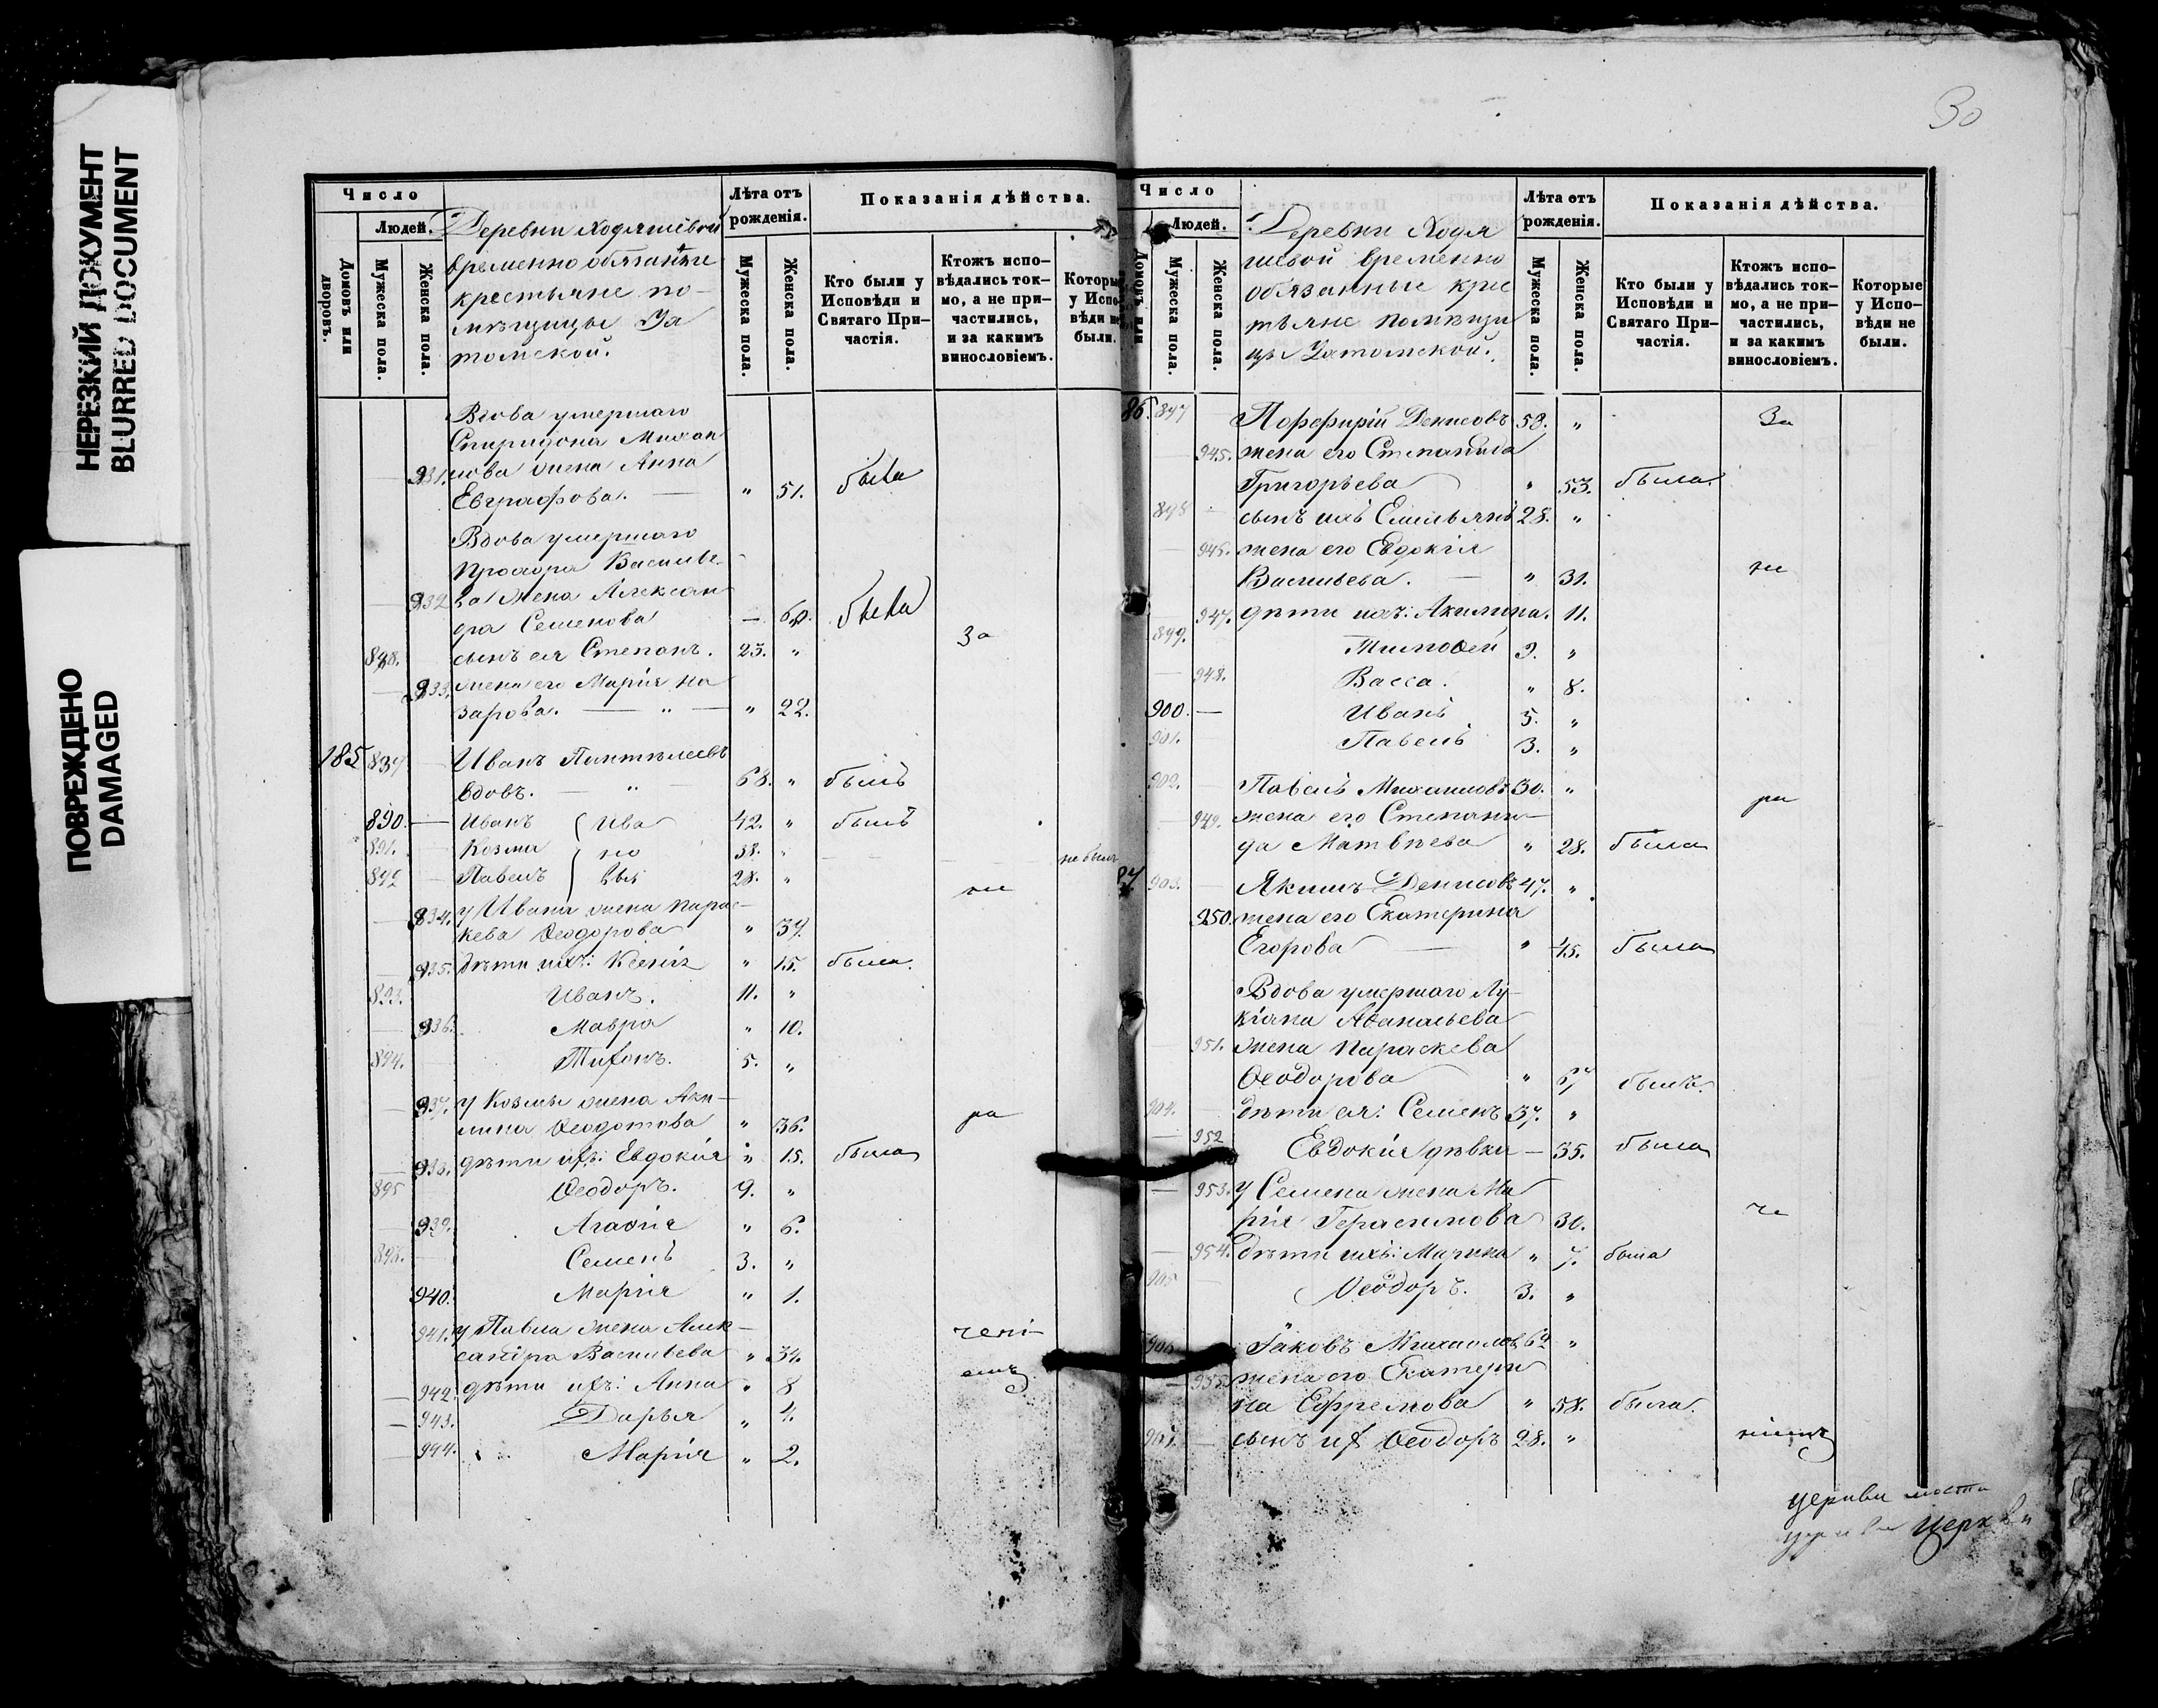 НЕРЕЗКИЙ ДОКУМЕНТ
BLURRED DOCUMENT
ПОВРЕЖДЕНО
DAMAGED
Число
Людей.
Домовъ или дворовъ.
Мужеска пола.
Женска пола.
Деревни Ходяшевой
временнообязанные
крестьяне по-
мѣщицы Ух
томской.
Лѣта отъ рожденія.
Мужеска пола.
Женска пола.
Показанія дѣйства.
Кто были у Исповѣди и Святаго При-частія.
Ктожъ испо-вѣдались ток-мо, а не при-частились, и за какимъ винословіемъ.
Которые у Испо-вѣди не были.
Вдова умершаго
Спиридона Михаи
931. лова жена Анна
Евграфова. — " 51. была
Вдова умершаго
Прохора Василье-
932 ва жена Алексан
дра Семенова — 60. была
888. сынъ ея Степанъ. 23. " За
933. жена его Марія На
зарова. — " — " 22.
185 889 Иванъ Пантелеевъ
вдовъ. — " — 68. " былъ
890. — Иванъ Ива 42. " былъ
891. Козма но 38. "
892 Павелъ вы 28. " не не былъ
934. у Ивана жена Парас-
кева Ѳеодорова " 37.
935. дѣти ихъ: Ксенія " 15. была.
893. Иванъ. 11. "
936. Мавра " 10.
894. Тихонъ. 5. "
937. у Козмы жена Аки-
лина Ѳеодотова " 36. ра
938. дѣти ихъ: Евдокія " 15. была
895 Ѳеодоръ. 9. "
939. Агафія " 6.
896. Семенъ 3. "
940. Марія " 1.
941. у Павла жена Алек-
сандра Васильева " 34. чені-
942. дѣти ихъ: Анна " 8 емъ
943. Дарья " 4.
944. Марія " 2.
30
Число
Людей.
Домовъ или
Мужеска пола.
Женска пола.
Деревни Ходя
шевой временно
обязанные крес
тьяне помѣщи
цы Ухтомской.
Лѣта отъ рожденія.
Мужеска пола.
Женска пола.
Показанія дѣйства.
Кто были у Исповѣди и Святаго При-частія.
Ктожъ испо-вѣдались ток-мо, а не при-частились, и за какимъ винословіемъ.
Которые у Испо-вѣди не были.
86. 897 Порфирій Денисовъ 58. " За
945. жена его Степанида
Григорьева " 53. была
898 сынъ ихъ Емельянъ 28. "
946. жена его Евдокія
Васильева. — " 31. не
947. дѣти ихъ: Акилина. 11.
899. Тимоѳей 9. "
948. Васса. " 8.
900. — Иванъ 5. "
901. Павелъ 3. "
902. Павелъ Михаиловъ 30. "
949. жена его Степани- ра
да Матвѣева " 28. была
87 903. Якимъ Денисовъ 47. "
950. жена его Екатерина
Егорова — " 45. была
Вдова умершаго Лу
кіяна Аѳанасьева
951. жена Параскева
Ѳеодорова " 67 была.
904. дѣти ея: Семенъ 37. "
952 Евдокія дѣвка — 35. была
953. у Семена жена Ма
рія Герасимова 30. че
954. дѣти ихъ: Марина " 7. была
905 Ѳеодоръ. 3. "
906 Іаковъ Михаиловъ 64 "
955. жена его Екатери
на Ефремова " 58. была.
907. сынъ их Ѳеодоръ 28. " ніемъ
церкви
церкви церкви